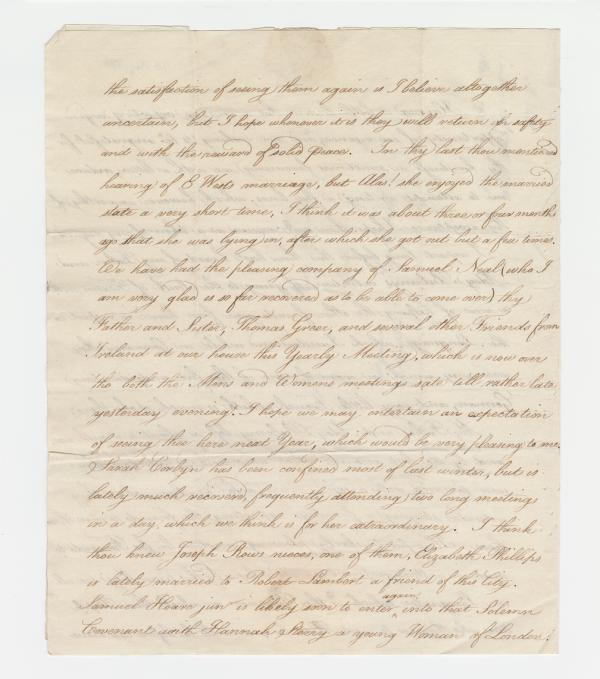 the satisfaction of seeing them again is I believe altogether
uncertain, but I hope whenever it is they will return in safety
and with the reward of solid peace. In thy last thou mentioned
hearing of E Wests marriage, but Alas! she enjoyed the married
state a very short time, I think it was about three or four months
ago that she was lying in, after which she got out but a few times.
We have had the pleasing company of Samuel Neal (who I
am very glad is so far recovered as to be able to come over) thy
Father and Sister, Thomas Greer, and several other Friends from
Ireland at our house this Yearly Meeting, which is now over
tho both the Mens and Womens meetings sate till rather late
yesterday evening. I hope we may entertain an expectation
of seeing thee here next Year, which would be very pleasing to me.
& Sarah Corbyn has been confined most of last winter, but is
lately much recovered, frequently attending two long meetings
in a day, which we think is for her extraordinary. I think
thou knew Joseph Rows nieces, one of them, Elizabeth Phillips
is lately married to Robert Lambert a friend of this City.
Samuel Hoare junr is likely soon to enter again into that Solemn
Covenant with Hannah Sterry a young Woman of London.